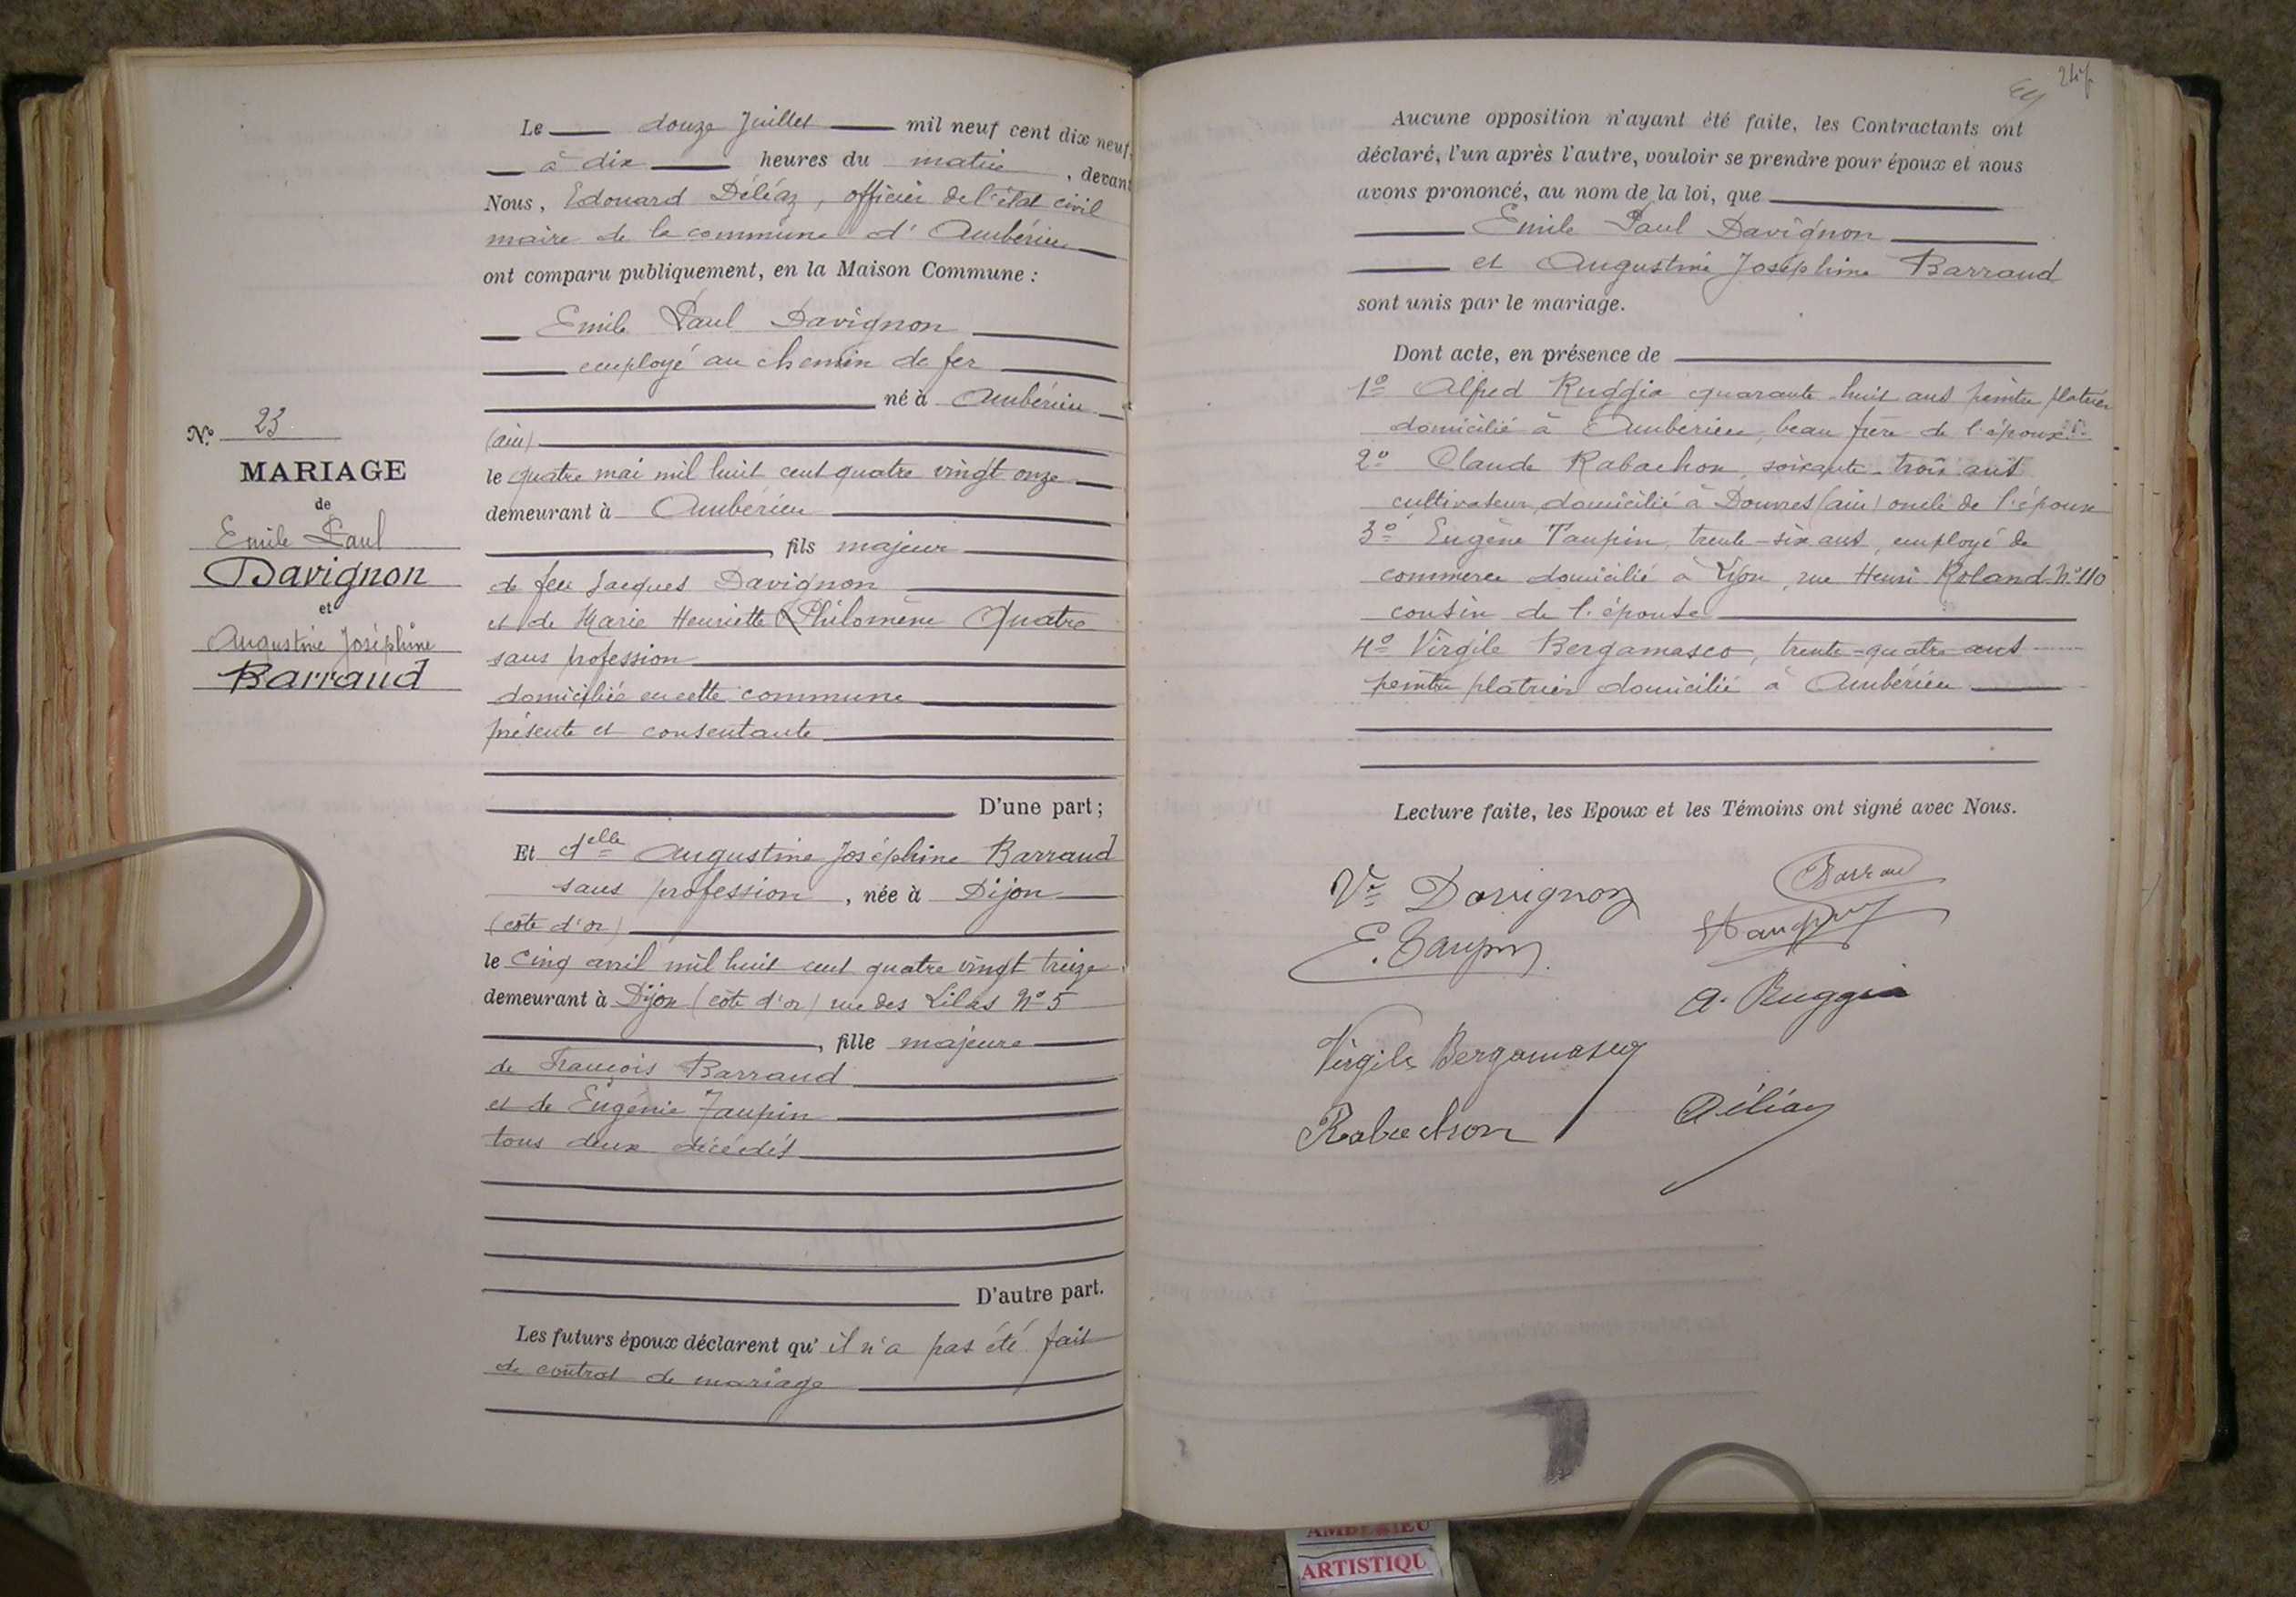 N.° 23
MARIAGE
de
Emile Paul
Davignon
et
Augustine Joséphine
Barraud
Le douze Juillet mil neuf cent dix neuf
à dix heures du matin, devant
Nous, Edouard Déléaz, officier de l'état civil
maire de la commune d'Ambérieu
ont comparu publiquement, en la Maison Commune :
Emile Paul Davignon
employé au chemin de fer
né à Ambérieu
(ain)
le quatre mai mil huit cent quatre vingt onze
demeurant à Ambérieu
, fils majeur
de feu Jacques Davignon
et de Marie Henriette Philomène Quatre
sans profession
domiciliée en cette commune
présente et consentante
D'une part ;
Et delle Augustine Joséphine Barraud
sans profession, née à Dijon
(côte d'or)
le cinq avril mil huit cent quatre vingt treize
demeurant à Dijon (côte d'or) rue des Lilas N° 5
, fille majeure
de François Barraud
et de Eugénie Taupin
tous deux décédés
D'autre part.
Les futurs époux déclarent qu'il n'a pas été fait
de contrat de mariage
Aucune opposition n'ayant été faite, les Contractants ont
déclaré, l'un après l'autre, vouloir se prendre pour époux et nous
avons prononcé, au nom de la loi, que
Emile Paul Davignon
et Augustine Joséphine Barraud
sont unis par le mariage.
Dont acte, en présence de
1° Alfred Ruggia quarante-huit ans peintre platrier
domicilié à Ambérieu, beau frère de l'époux
2° Claude Rabachon, soixante-trois ans
cultivateur, domicilié à Douvres (ain) oncle de l'époux
3° Eugène Taupin, trente-six ans, employé de
commerce domicilié à Lyon, rue Henri Roland N° 110
cousin de l'épouse
4° Virgile Bergamasco, trente-quatre ans
peintre platrier domicilié à Ambérieu
Lecture faite, les Epoux et les Témoins ont signé avec Nous.
Ve Davignon
Barraud
E. Taupin
A. Ruggia
Virgile Bergamasco
Rabachon
Déléaz
AMBERIEU
ARTISTIQU